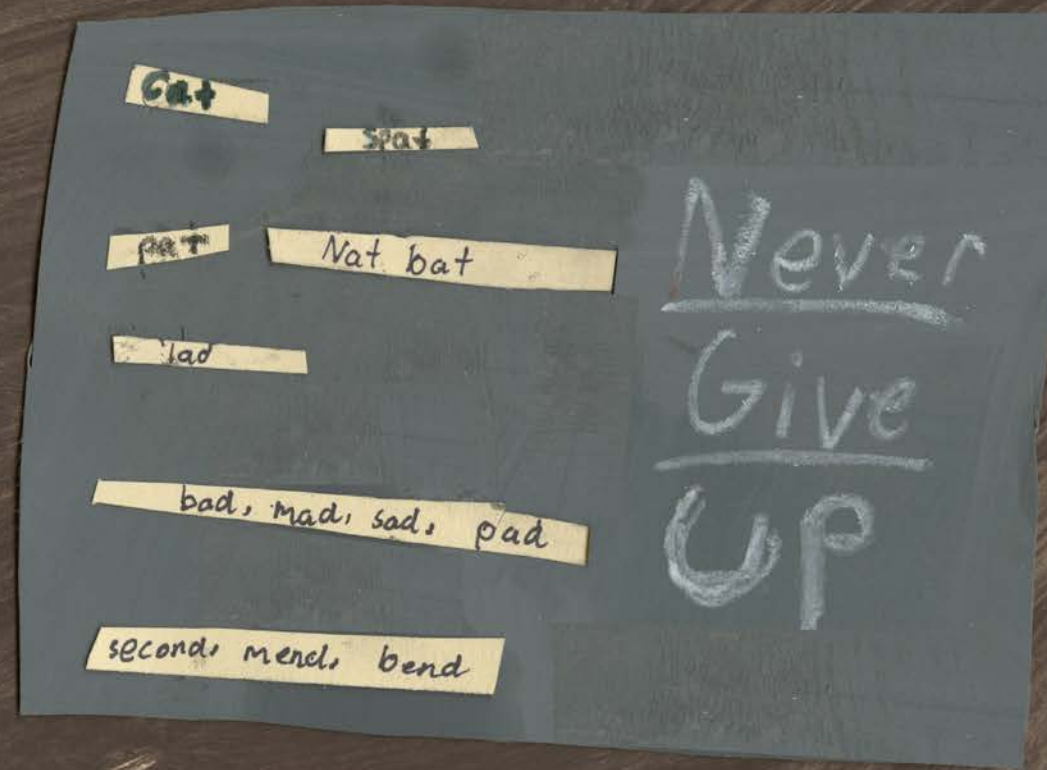 Cat
spat
pat
Nat bat
lad
bad, mad, sad, pad
second, mend, bend
Never
Give
UP